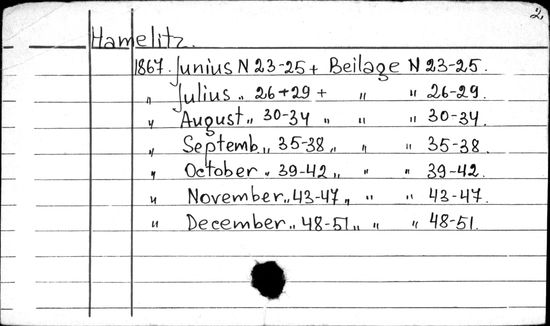 2.
Hamelitz.
1867. Junius N 23-25 + Beilage N 23-25.
" Julius " 26+29 + " " 26-29.
" August " 30-34 " " " 30-34.
" Septemb. " 35-38 " " " 35-38.
" October " 39-42 " " " 39-42.
" November " 43-47 " " " 43-47.
" December " 48-51 " " " 48-51.